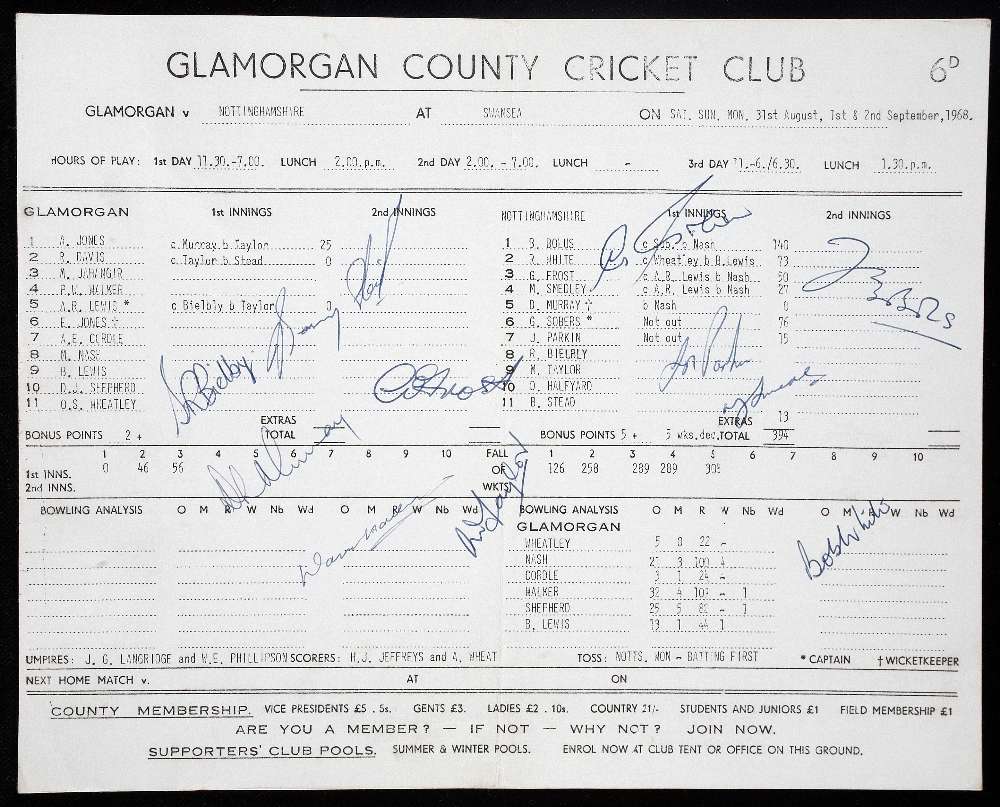 GLAMORGAN COUNTY CRICKET CLUB 6D
GLAMORGAN v NOTTINGHAMSHIRE AT SWANSEA ON SAT. SUN. MON. 31st August, 1st & 2nd September, 1968.
HOURS OF PLAY: 1st DAY 11.30.-7.00. LUNCH 2.00.p.m. 2nd DAY 2.00. - 7.00. LUNCH - 3rd DAY 11.-6./6.30. LUNCH 1.30.p.m.
GLAMORGAN 1st INNINGS 2nd INNINGS
1 A. JONES c.Murray.b.Taylor 25
2 R. DAVIS c.Taylor b.Stead 0
3 M. JAHANGIR
4 P.M. WALKER
5 A.R. LEWIS * c Bielbly b Taylor 0
6 E. JONES †
7 A.E. CORDLE
8 M. NASH
9 B. LEWIS
10 D.J. SHEPHERD
11 O.S. WHEATLEY
EXTRAS
BONUS POINTS 2 + TOTAL
NOTTINGHAMSHIRE 1st INNINGS 2nd INNINGS
1 B. BOLUS c Sub. b Nash 140
2 R. WHITE c Wheatley b B.Lewis 73
3 G. FROST c A.R. Lewis b Nash 50
4 M. SMEDLEY c A.R. Lewis b Nash 27
5 D. MURRAY † b Nash 0
6 G. SOBERS * Not out 76
7 J. PARKIN Not out 15
8 R. BIELBLY
9 M. TAYLOR
10 D. HALFYARD
11 B. STEAD
EXTRAS 13
BONUS POINTS 5 + 5 wks.dec.TOTAL 394
1 2 3 4 5 6 7 8 9 10 FALL OF WKTS 1 2 3 4 5 6 7 8 9 10
1st INNS. 0 46 56 126 258 289 289
2nd INNS.
BOWLING ANALYSIS O M R W Nb Wd O M R W Nb Wd BOWLING ANALYSIS O M R W Nb Wd O M R W Nb Wd
GLAMORGAN
WHEATLEY 5 0 22 -
NASH 3 100 4
CORDLE 3 1 24 -
WALKER 32 4 - 1
SHEPHERD 25 5 - 1
B. LEWIS 13 1 44 1
R Bielby
D A Murray
M Taylor
Jon Parkin
Bob White
UMPIRES: J. G. LANGRIDGE and W.E. PHILLIPSON SCORERS: H.J. JEFFREYS and A. WHEAT TOSS: NOTTS. WON - BATTING FIRST * CAPTAIN † WICKETKEEPER
NEXT HOME MATCH v. AT ON
COUNTY MEMBERSHIP. VICE PRESIDENTS £5 . 5s. GENTS £3. LADIES £2 . 10s. COUNTRY 21/- STUDENTS AND JUNIORS £1 FIELD MEMBERSHIP £1
ARE YOU A MEMBER? — IF NOT — WHY NOT? JOIN NOW.
SUPPORTERS' CLUB POOLS. SUMMER & WINTER POOLS. ENROL NOW AT CLUB TENT OR OFFICE ON THIS GROUND.